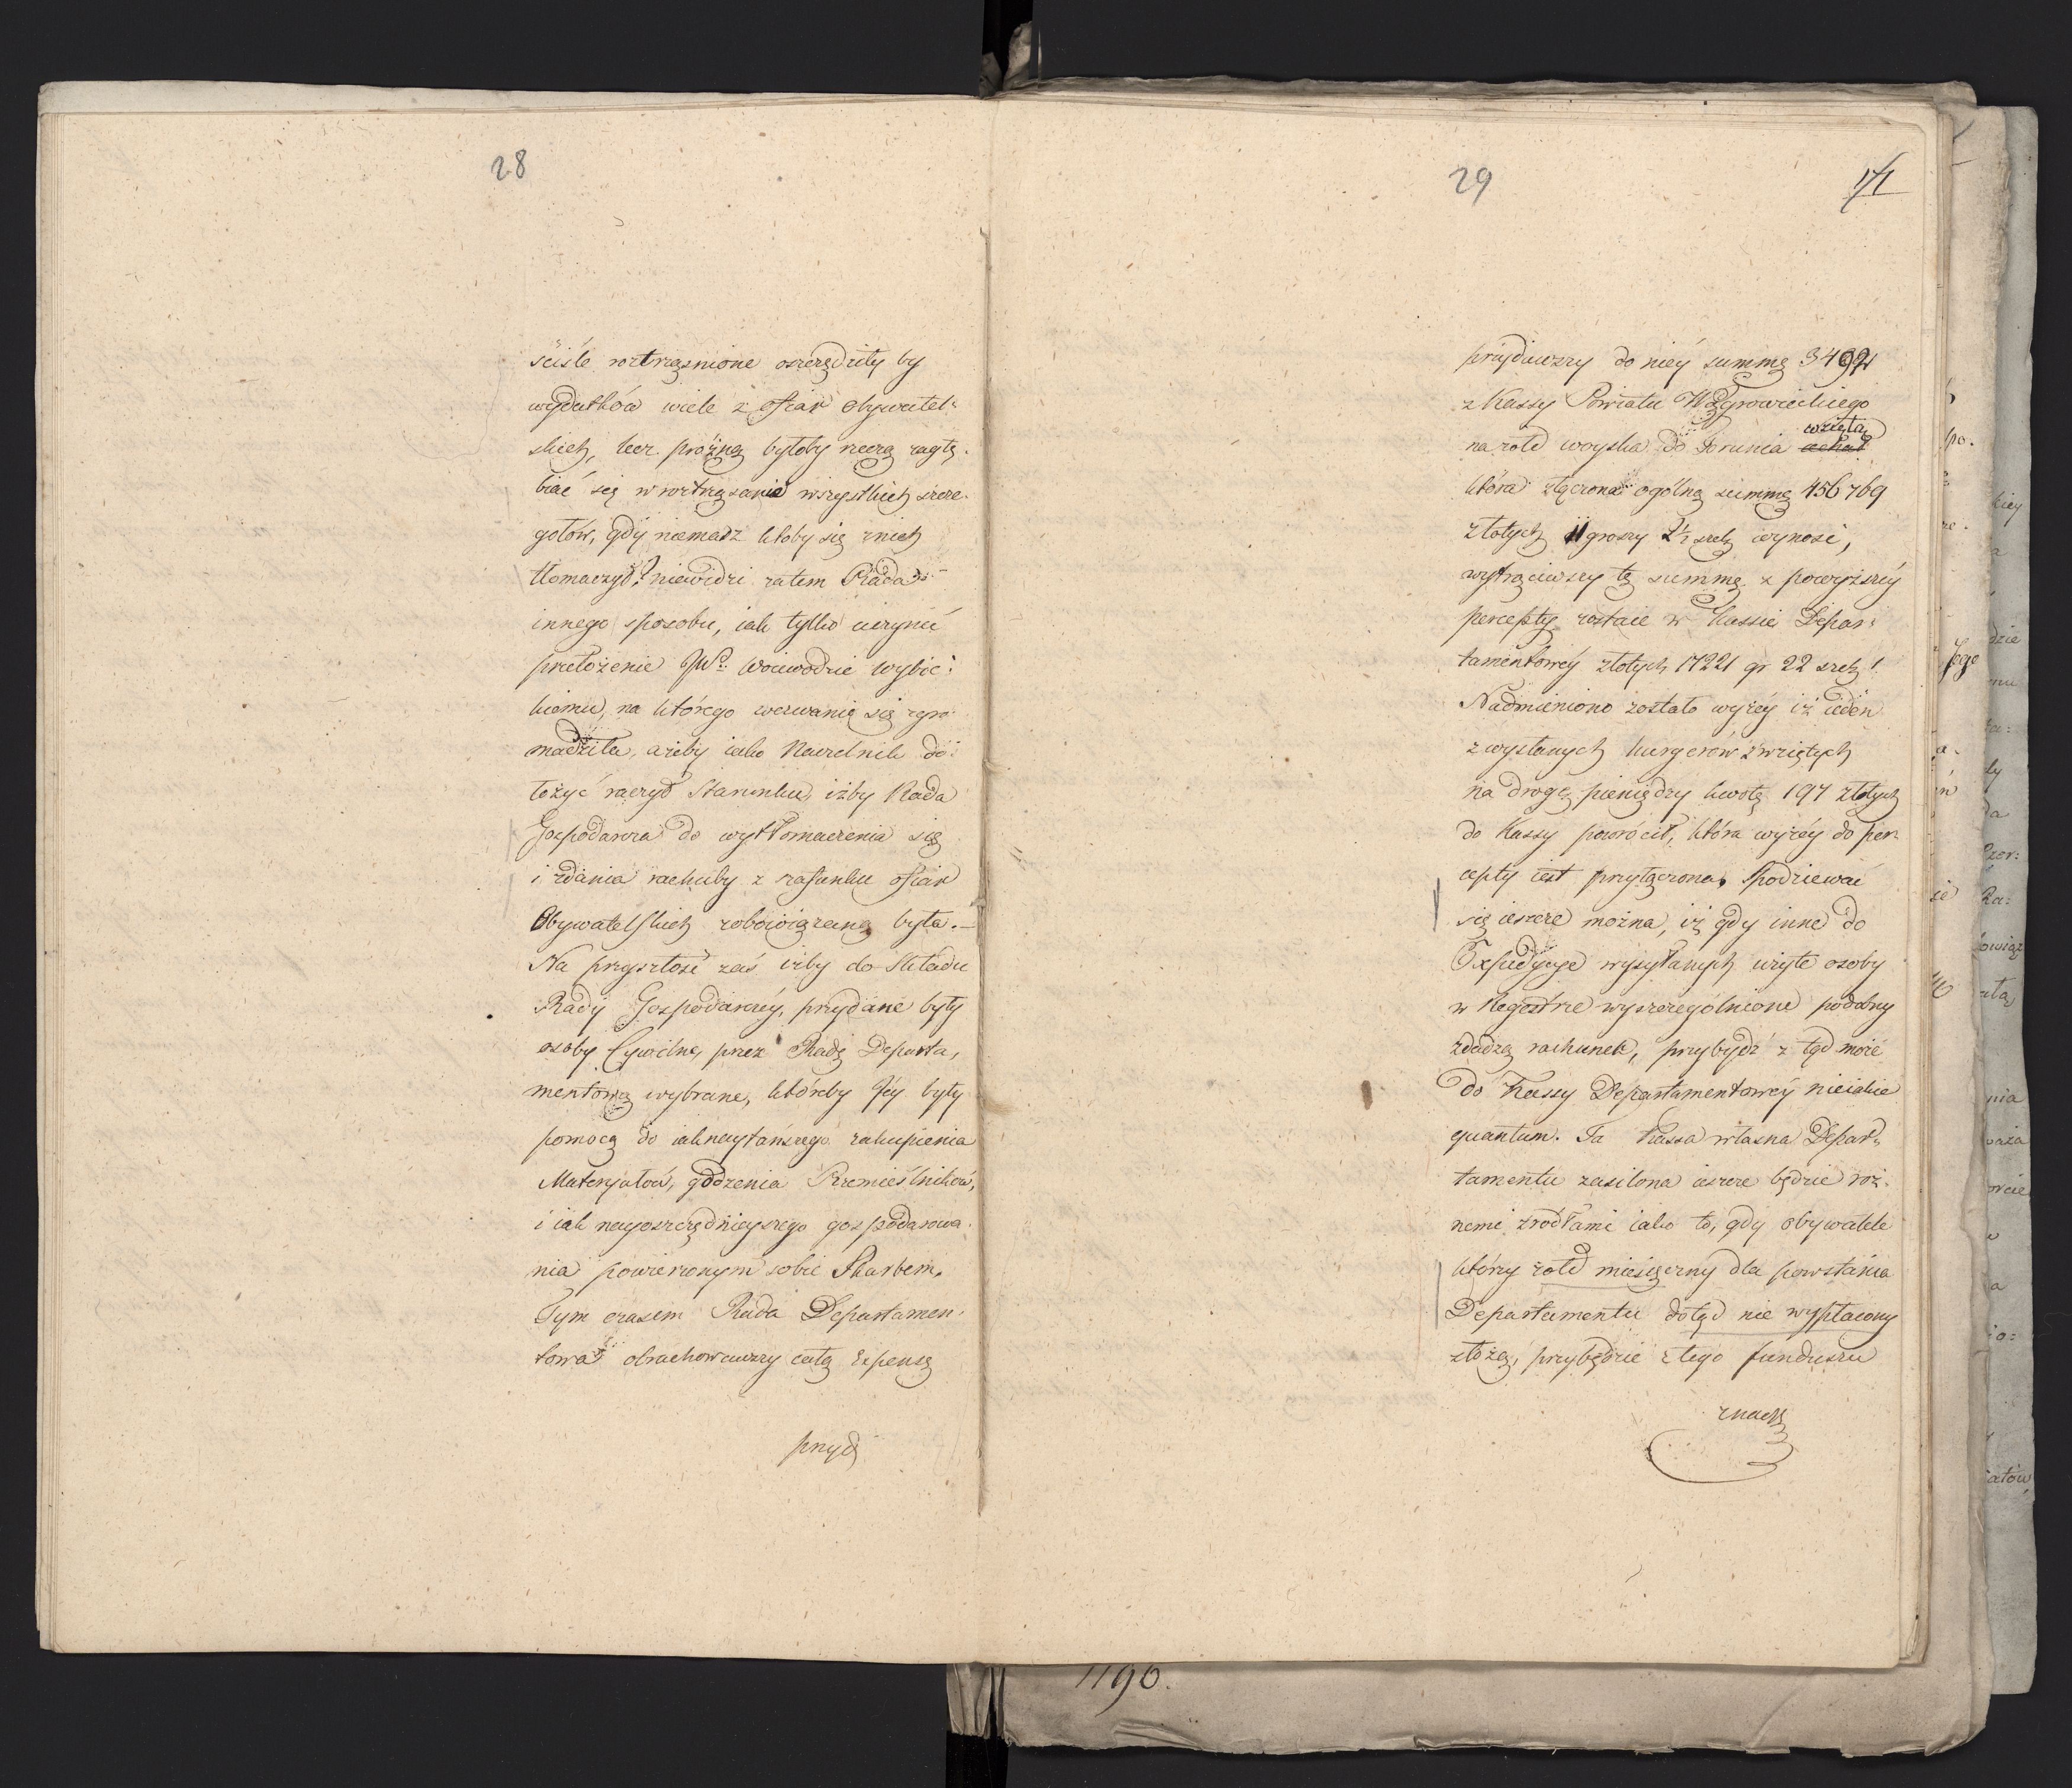 28
ściśle roztrząsnione oszczędziły by
wydatków wiele z ofiar obywatel:
skich, lecz próżną byłoby rzeczą zagłę.
biać się w roztrząsanie wszystkich szcze.
gołów, gdy niemasz ktoby się z nich
tłomaczył? niewidzi zatem Rada
innego sposobu, iak tylko uczynić
przełożenie JW. Woiewodzie Wybic:
kiemu, na którego wezwanie się zgro
madziła, ażeby iako Naczelnik do:
łożyć raczył starunku, iżby Rada
Gospodarcza do wytłomaczenia się
i zdania rachuby z szafunku ofiar
Obywatelskich zobowiązaną była.—
Na przyszłość zaś iżby do Składu
Rady Gospodarczey, przydane były
osoby Cywilne, przez Radę Departa,
mentową wybrane, któreby Jéy były
pomocą do iaknaytańszego zakupienia
Materyałów, godzenia Rzemieślników,
i iak nayoszczędnieyszego gospodarowa.
nia powierzonym sobie Skarbem.
Tym czasem Rada Departamen.
towa obrachowawszy całą Expensę
przyd
29
przydawszy do niéy summę 3492
z Kassy Powiatu Wągrowieckiego
wziętą
na żołd woyska do Torunia
która złączona ogólną summę 456769
złotych 11 groszy 2½ szel: wynosi,
wytrąciwszy tę summę z powyższéy
percepty zostaie w Kassie Depar:
tamentowéy złotych 17221 gr 22 szel: 1
Nadmieniono zostało wyżéy iż ieden
z wysłanych kurgerów z wziętych
na drogę pieniędzy kwotę 197 złotych
do Kassy powrócił, która wyżéy do per.
cepty iest przyłączona. Spodziewać
się ieszcze można, iż gdy inne do
Expedycye wysyłanych użyte osoby
w Regestrze wyszczególnione podobny
zdadzą rachunek, przybydź z tąd może
do Kassy Departamentowéy nieiakie
quantum. Ta Kassa własna Depar„
tamentu zasilona ieszcze będzie róż.
nemi źródłami iako to, gdy obywatele
którzy żołd miesięczny dla powstania
Departamentu dotąd nie wypłacony
złożą, przybędzie z tego funduszu
znacz
1796.